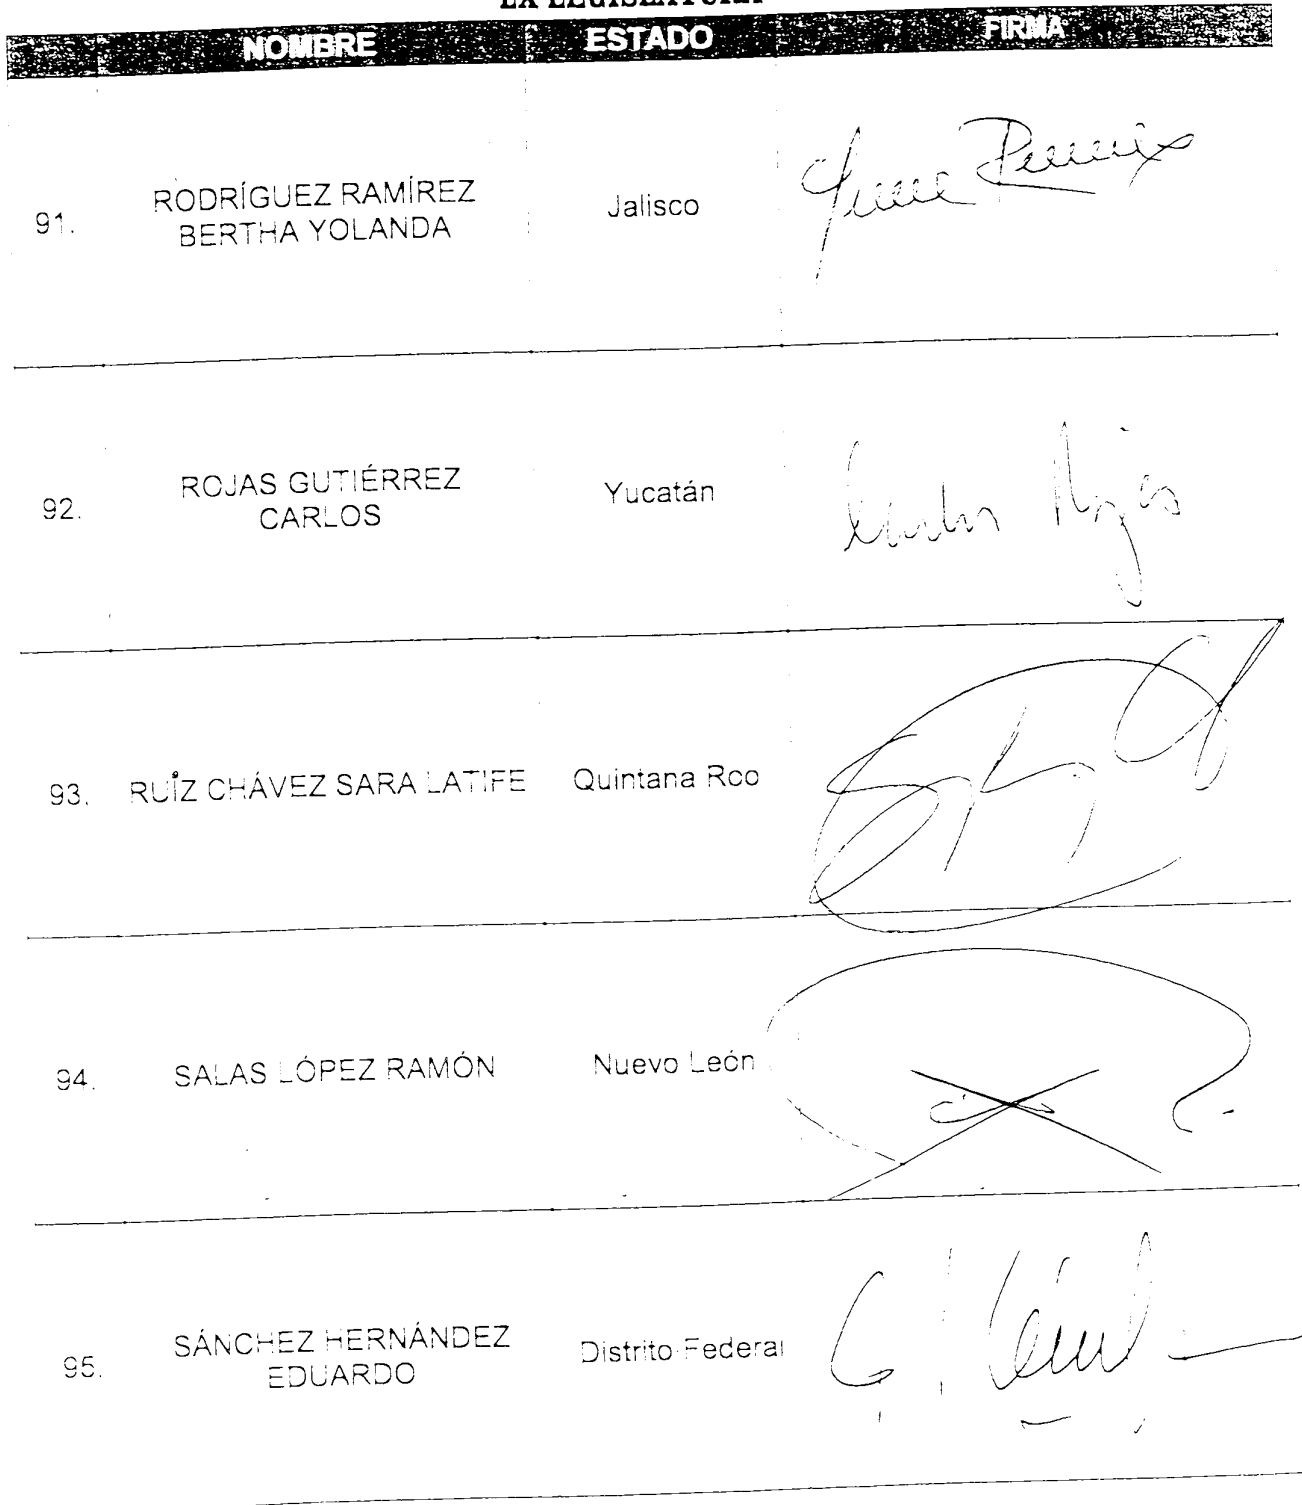 NOMBRE ESTADO FIRMA
91. RODRÍGUEZ RAMÍREZ BERTHA YOLANDA Jalisco
92. ROJAS GUTIÉRREZ CARLOS Yucatán Carlos Rojas
93. RUÍZ CHÁVEZ SARA LATIFE Quintana Roo
94. SALAS LÓPEZ RAMÓN Nuevo León
95. SÁNCHEZ HERNÁNDEZ EDUARDO Distrito Federal